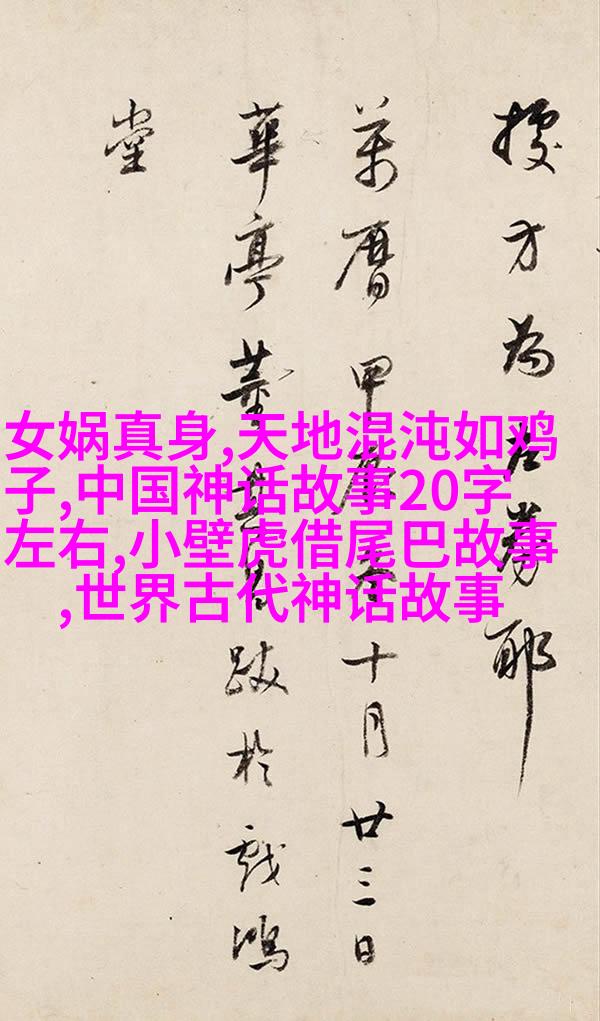 女娲真身,天地混沌如鸡
子,中国神话故事20字
左右,小壁虎借尾巴故事
,世界古代神话故事
方為券耶
萬曆甲辰冬十月廿三日
華亭董其昌跋於戲鴻
堂